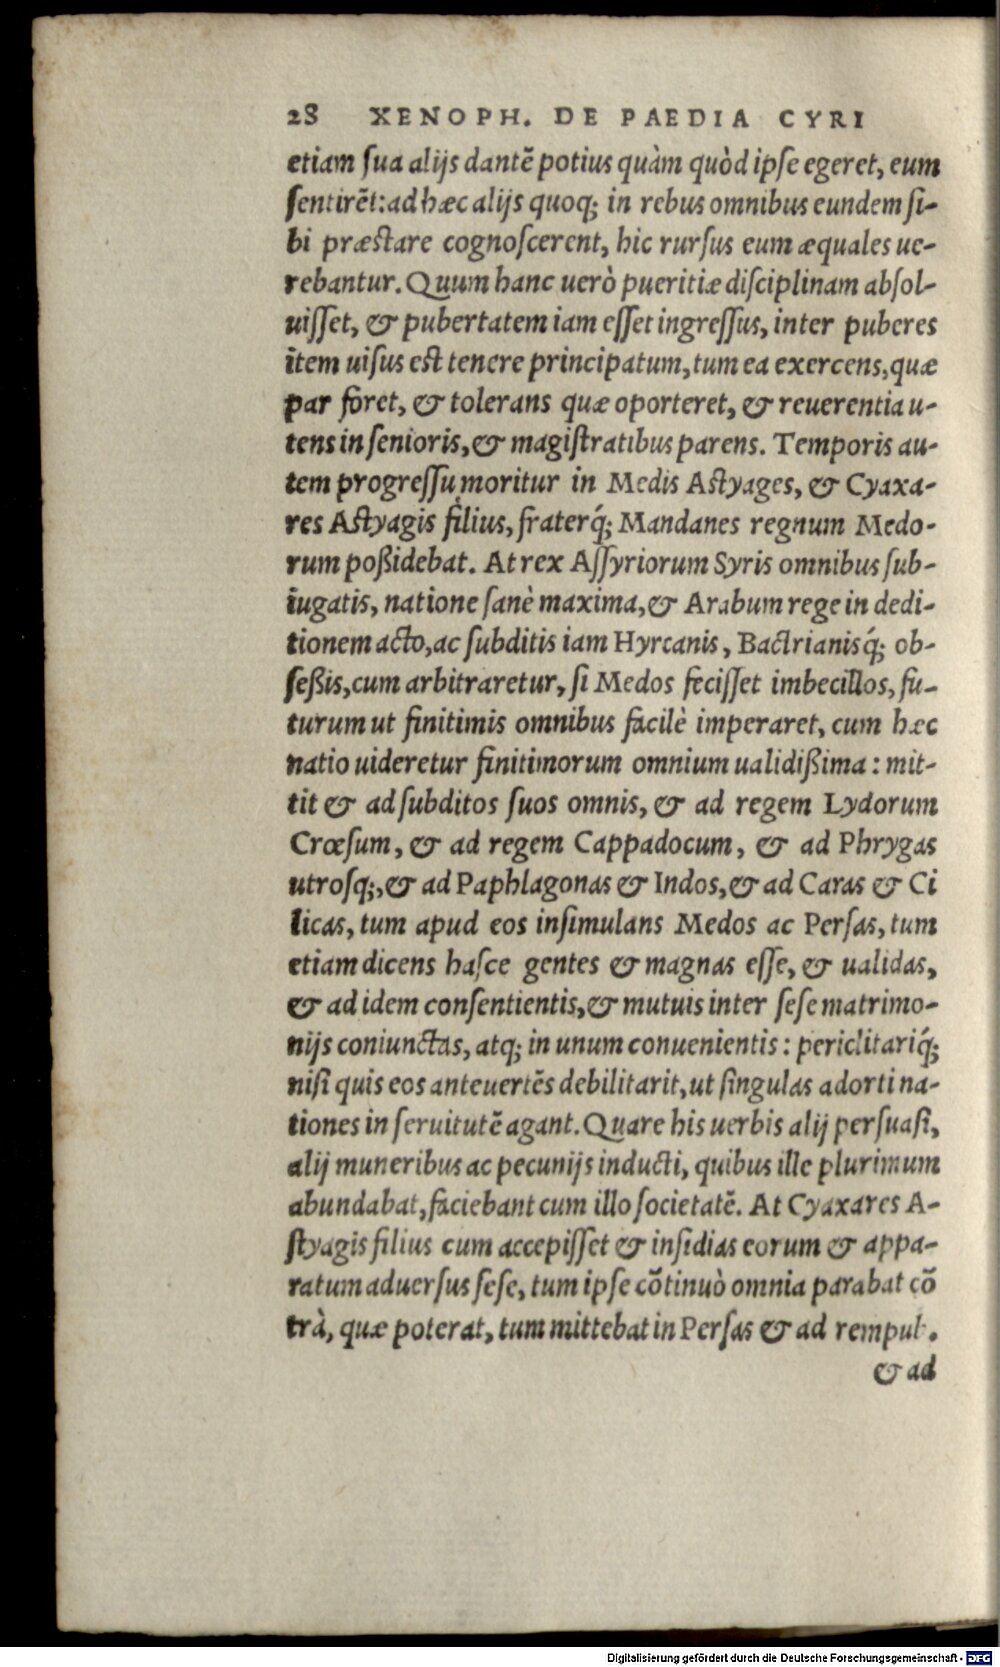 28 XENOPH. DE PAEDIA CYRI
etiam sua alijs dantē potius quàm quòd ipse egeret, eum
sentirēt: ad hæc alijs quoq; in rebus omnibus eundem si-
bi præstare cognoscerent, hic rursus eum æquales ue-
rebantur. Quum hanc uerò pueritiæ disciplinam absol-
uisset, & pubertatem iam esset ingressus, inter puberes
item uisus est tenere principatum, tum ea exercens, quæ
par foret, & tolerans quæ oporteret, & reuerentia u-
tens in senioris, & magistratibus parens. Temporis au-
tem progressu moritur in Medis Astyages, & Cyaxa-
res Astyagis filius, fraterq́; Mandanes regnum Medo-
rum poßidebat. At rex Assyriorum Syris omnibus sub-
iugatis, natione sanè maxima, & Arabum rege in dedi-
tionem acto, ac subditis iam Hyrcanis, Bactrianisq́; ob-
seßis, cum arbitraretur, si Medos fecisset imbecillos, fu-
turum ut finitimis omnibus facilè imperaret, cum hæc
natio uideretur finitimorum omnium ualidißima: mit-
tit & ad subditos suos omnis, & ad regem Lydorum
Crœsum, & ad regem Cappadocum, & ad Phrygas
utrosq;, & ad Paphlagonas & Indos, & ad Caras & Ci
licas, tum apud eos insimulans Medos ac Persas, tum
etiam dicens hasce gentes & magnas esse, & ualidas,
& ad idem consentientis, & mutuis inter sese matrimo-
nijs coniunctas, atq; in unum conuenientis: periclitariq́;
nisi quis eos anteuertēs debilitarit, ut singulas adorti na-
tiones in seruitutē agant. Quare his uerbis alij persuasi,
alij muneribus ac pecunijs inducti, quibus ille plurimum
abundabat, faciebant cum illo societatē. At Cyaxares A-
styagis filius cum accepisset & insidias eorum & appa-
ratum aduersus sese, tum ipse cōtinuò omnia parabat cō
trà, quæ poterat, tum mittebat in Persas & ad rempub.
& ad
Digitalisierung gefördert durch die Deutsche Forschungsgemeinschaft - DFG